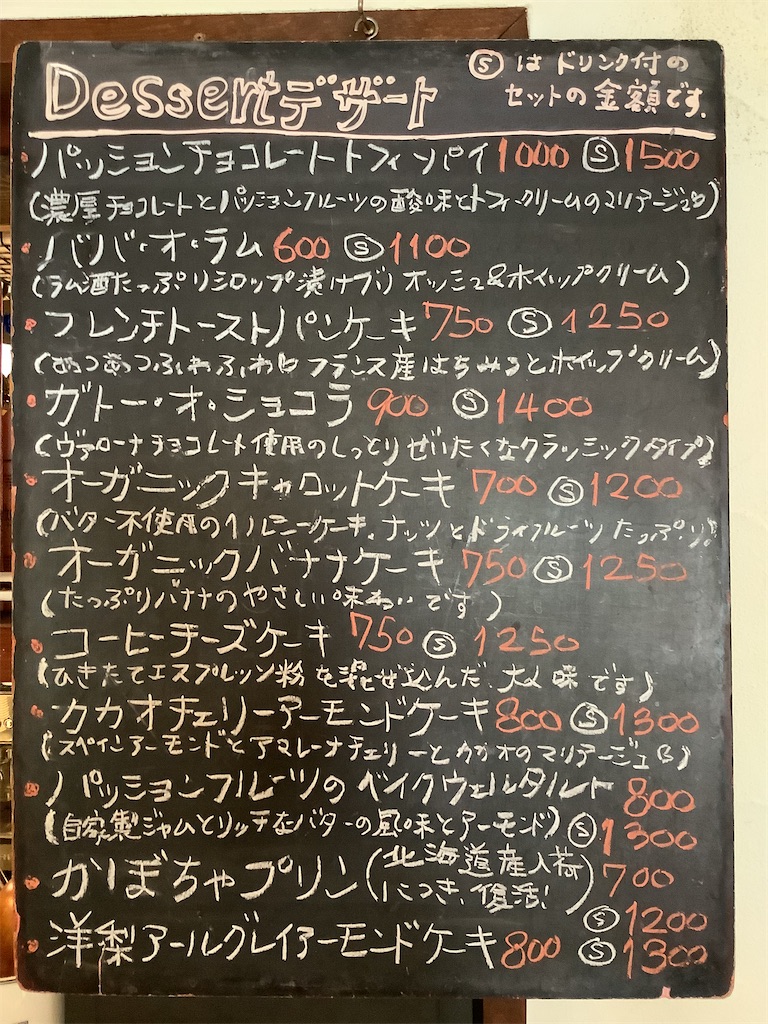 Dessertデザート
Ⓢ は ドリンク付の
セットの金額です.
パッションチョコレートトフィーパイ 1000 Ⓢ 1500
(濃厚チョコレートとパッションフルーツの酸味とトフィークリームのマリアージュ♡)
ババ・オ・ラム 600 Ⓢ 1100
(ラム酒たっぷりシロップ漬けブリオッシュ&ホイップクリーム)
フレンチトーストパンケーキ 750 Ⓢ 1250
(あつあつふわふわ♡フランス産はちみつとホイップクリーム)
ガトー・オ・ショコラ 900 Ⓢ 1400
(ヴァローナチョコレート使用のしっとりぜいたくなクラッシックタイプ)
オーガニックキャロットケーキ 700 Ⓢ 1200
(バター不使用のヘルシーケーキ.ナッツとドライフルーツたっぷり!)
オーガニックバナナケーキ 750 Ⓢ 1250
(たっぷりバナナのやさしい味わいです)
コーヒーチーズケーキ 750 Ⓢ 1250
(ひきたてエスプレッソ粉を混ぜ込んだ、大人味です)
カカオチェリーアーモンドケーキ 800 Ⓢ 1300
(スペインアーモンドとアマレーナチェリーとカカオのマリアージュ♡)
パッションフルーツのベイクウェルタルト 800
(自家製ジャムとリッチなバターの風味とアーモンド) Ⓢ 1300
かぼちゃプリン (北海道産入荷につき、復活!) 700
Ⓢ 1200
洋梨アールグレイアーモンドケーキ 800 Ⓢ 1300